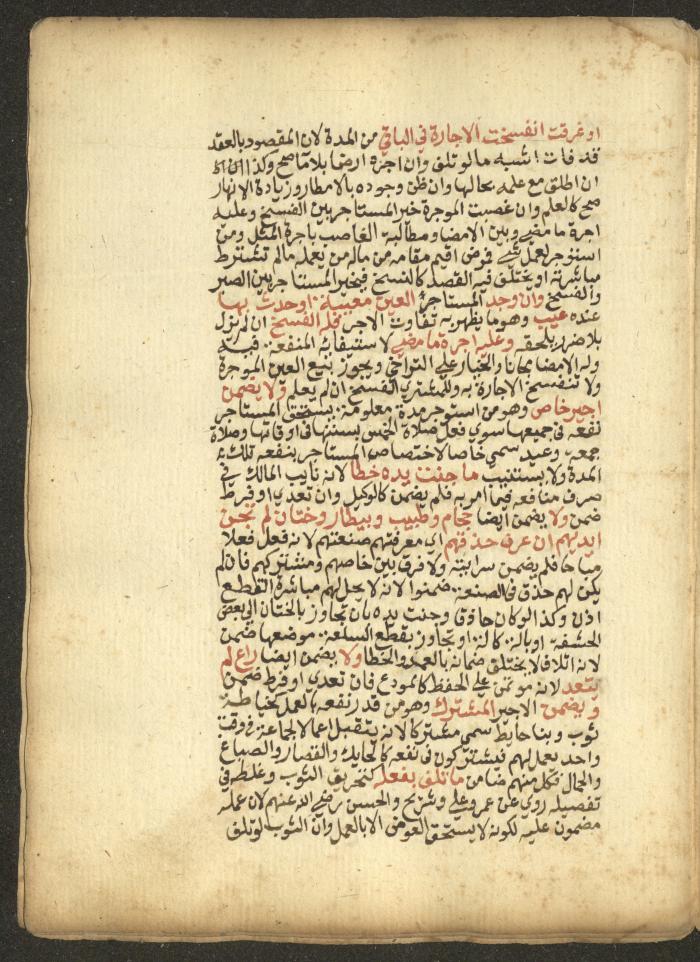 او غرقت انفسخت الاجارة في الباقي من المدة لان المقصود بالعقد
قد فات اشبه ما لو تلف وان اجره ارضا بلا ما صح وكذا ان
ان اطلق مع علمه بحالها وان ظن وجوده بالامطار وزيادة الانهار
صح كالعلم وان غصبت الموجرة خير المستاجر بين الفسخ وعليه
اجرة ما مضى وبين الامضا ومطالبة الغاصب باجرة المثل ومن
استوجر لعمل شي فمرض اقيم مقامه من ماله من يعمله ما لم تشترط
مباشرته او يختلف فيه القصد كالنسخ فيخير المستاجر بين الصبر
والفسخ وان وجد المستاجر العين معيبة او حدث بها
عنده عيب وهو ما يظهر به تفاوت الاجر فله الفسخ ان لم يزل
بلا ضرر يلحقه وعليه اجرة ما مضى لاستيفائه المنفعة فيه
وله الامضا مجانا والخيار على التراخي ويجوز بيع العين الموجرة
ولا تنفسخ الاجارة به وللمشتري الفسخ ان لم يعلم ولا يضمن
اجير خاص وهو من استوجر مدة معلومة يستحق المستاجر
نفعه في جميعها سوى فعل صلاة الخمس بسننها في اوقاتها وصلاة
جمعة وعيد سمي خاصا لاختصاص المستاجر بنفعه تلك
المدة ولا يستنيب ما جنت يده خطا لانه نايب المالك في
صرف منافعه فيما امر به فلم يضمن كالوكيل وان تعدى او فرط
ضمن ولا يضمن ايضا حجام وطبيب وبيطار وختان لم تجن
ايديهم ان عرف حذقهم اي معرفتهم صنعتهم لانه فعل فعلا
مباحا فلم يضمن سرايته ولا فرق بين خاصهم ومشتركهم فان لم
يكن لهم حذق في الصنعة ضمنوا لانه لا يحل لهم مباشرة القطع
اذن وكذا لو كان حاذق وجنت يده بان تجاوز بالختان الى بعض
الحشفة او بالة كالة او تجاوز بقطع السلعة موضعها ضمن
لانه اتلاف لا يختلف ضمانه بالعمد والخطا ولا يضمن ايضا راع لم
يتعد لانه موتمن على الحفظ كالمودع فان تعدى او فرط ضمن
ويضمن الاجير المشترك وهو من قدر نفعه بالعمل كخياطة
ثوب وبنا حايط سمي مشتركا لانه يتقبل اعمالا لجماعة في وقت
واحد يعمل لهم فيشتركون في نفعه كالحايك والقصار والصباغ
والحمال فكل منهم ضامن ما تلف بفعله كتخريق الثوب وغلطه في
تفصيله روي عن عمر وعلي وشريح والحسن رضي الله عنهم لان عمله
مضمون عليه لكونه لا يستحق العوض الا بالعمل وان الثوب لو تلف